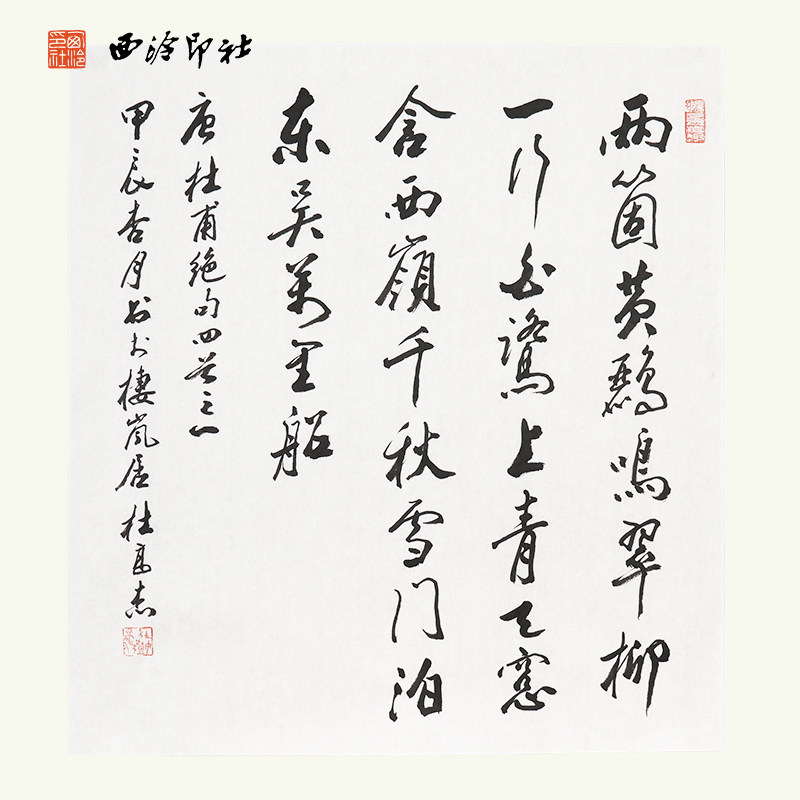 西泠印社
西泠印社
两箇黄鸝鳴翠柳
一行白鷺上青天窓
含西嶺千秋雪门泊
东吴萬里船
唐杜甫绝句四首之一
甲辰杏月书于棲嵐居杜高志